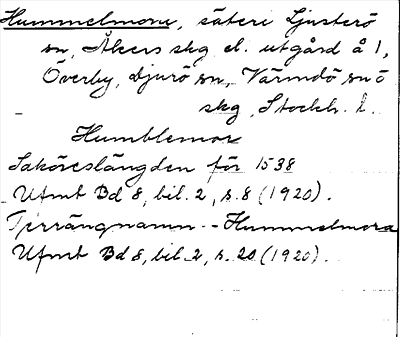 Hummelmora, säteri Ljusterö
sn, Åkers skg el. utgård å 1,
Överby, Djurö sn, Värmdö sn o
skg, Stockh. l.
Humblemor
Saköreslängden för 1538
Ufmt Bd 8, bil. 2, s. 8 (1920).
Terrängnamn -- Hummelmora
Ufmt Bd 8, bil. 2, s. 20 (1920).